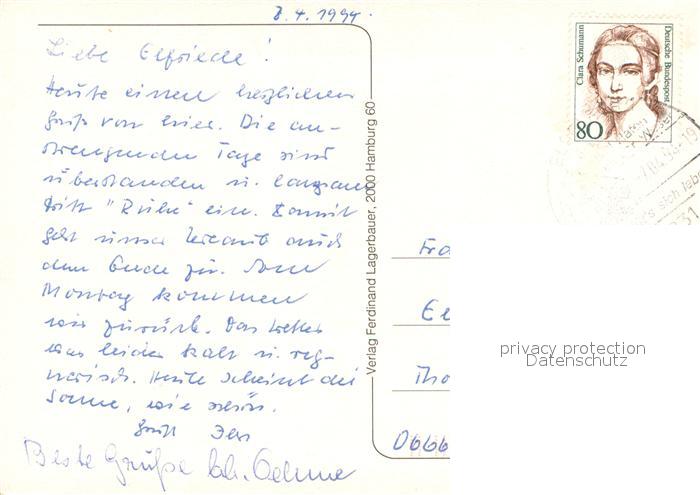 8.4.1994.
Liebe Elfriede!
Heute einen herzlichen
Gruß von hier. Die an-
strengenden Tage sind
überstanden u. langsam
tritt "Ruhe" ein. Damit
geht unser Urlaub auch
dem Ende zu. Am
Montag kommen
wir zurück. Das Wetter
war leider kalt u. reg-
nerisch. Heute scheint die
Sonne, wie schön.
Gruß
Beste Grüße
Verlag Ferdinand Lagerbauer, 2000 Hamburg 60
Clara Schumann
Deutsche Bundespost
80
Fra
El
Tho
0666
privacy protection
Datenschutz